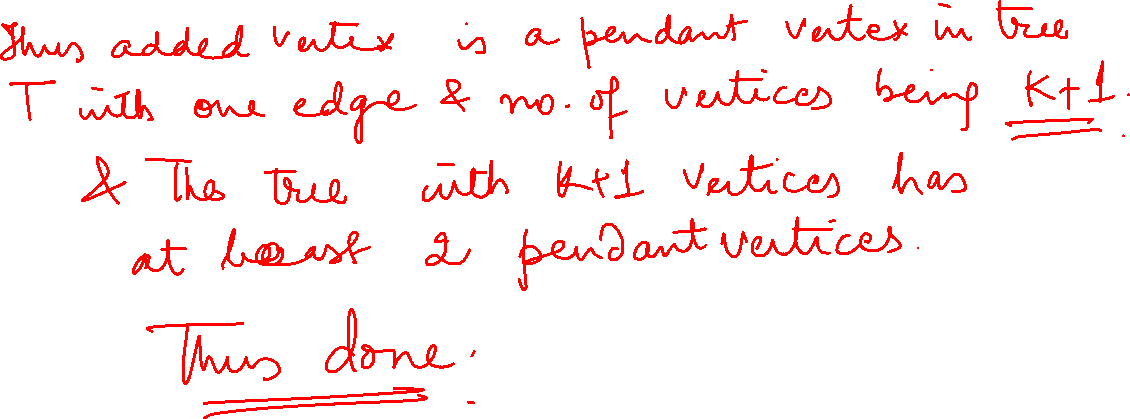 Thus added vertex is a pendant vertex in tree
T with one edge & no. of vertices being K+1.
& The tree with K+1 vertices has
at least 2 pendant vertices.
Thus done.